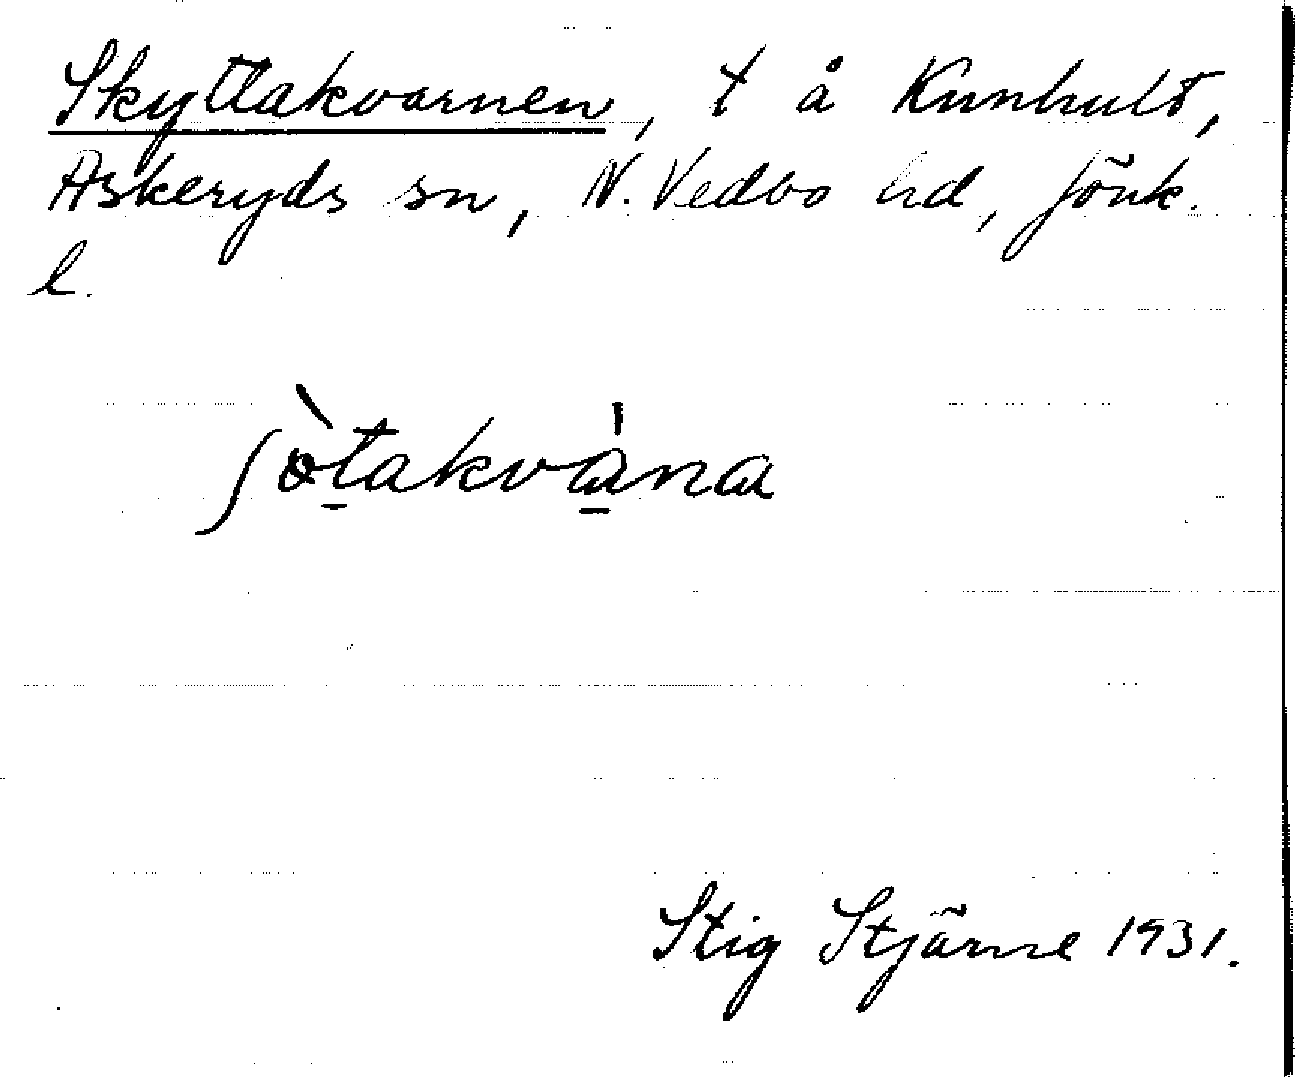 Skyttakvarnen, t å Knnhult,
Askeryds sn, N. Vedbo hd, Jönk.
l.
Stig Stjärne 1931.